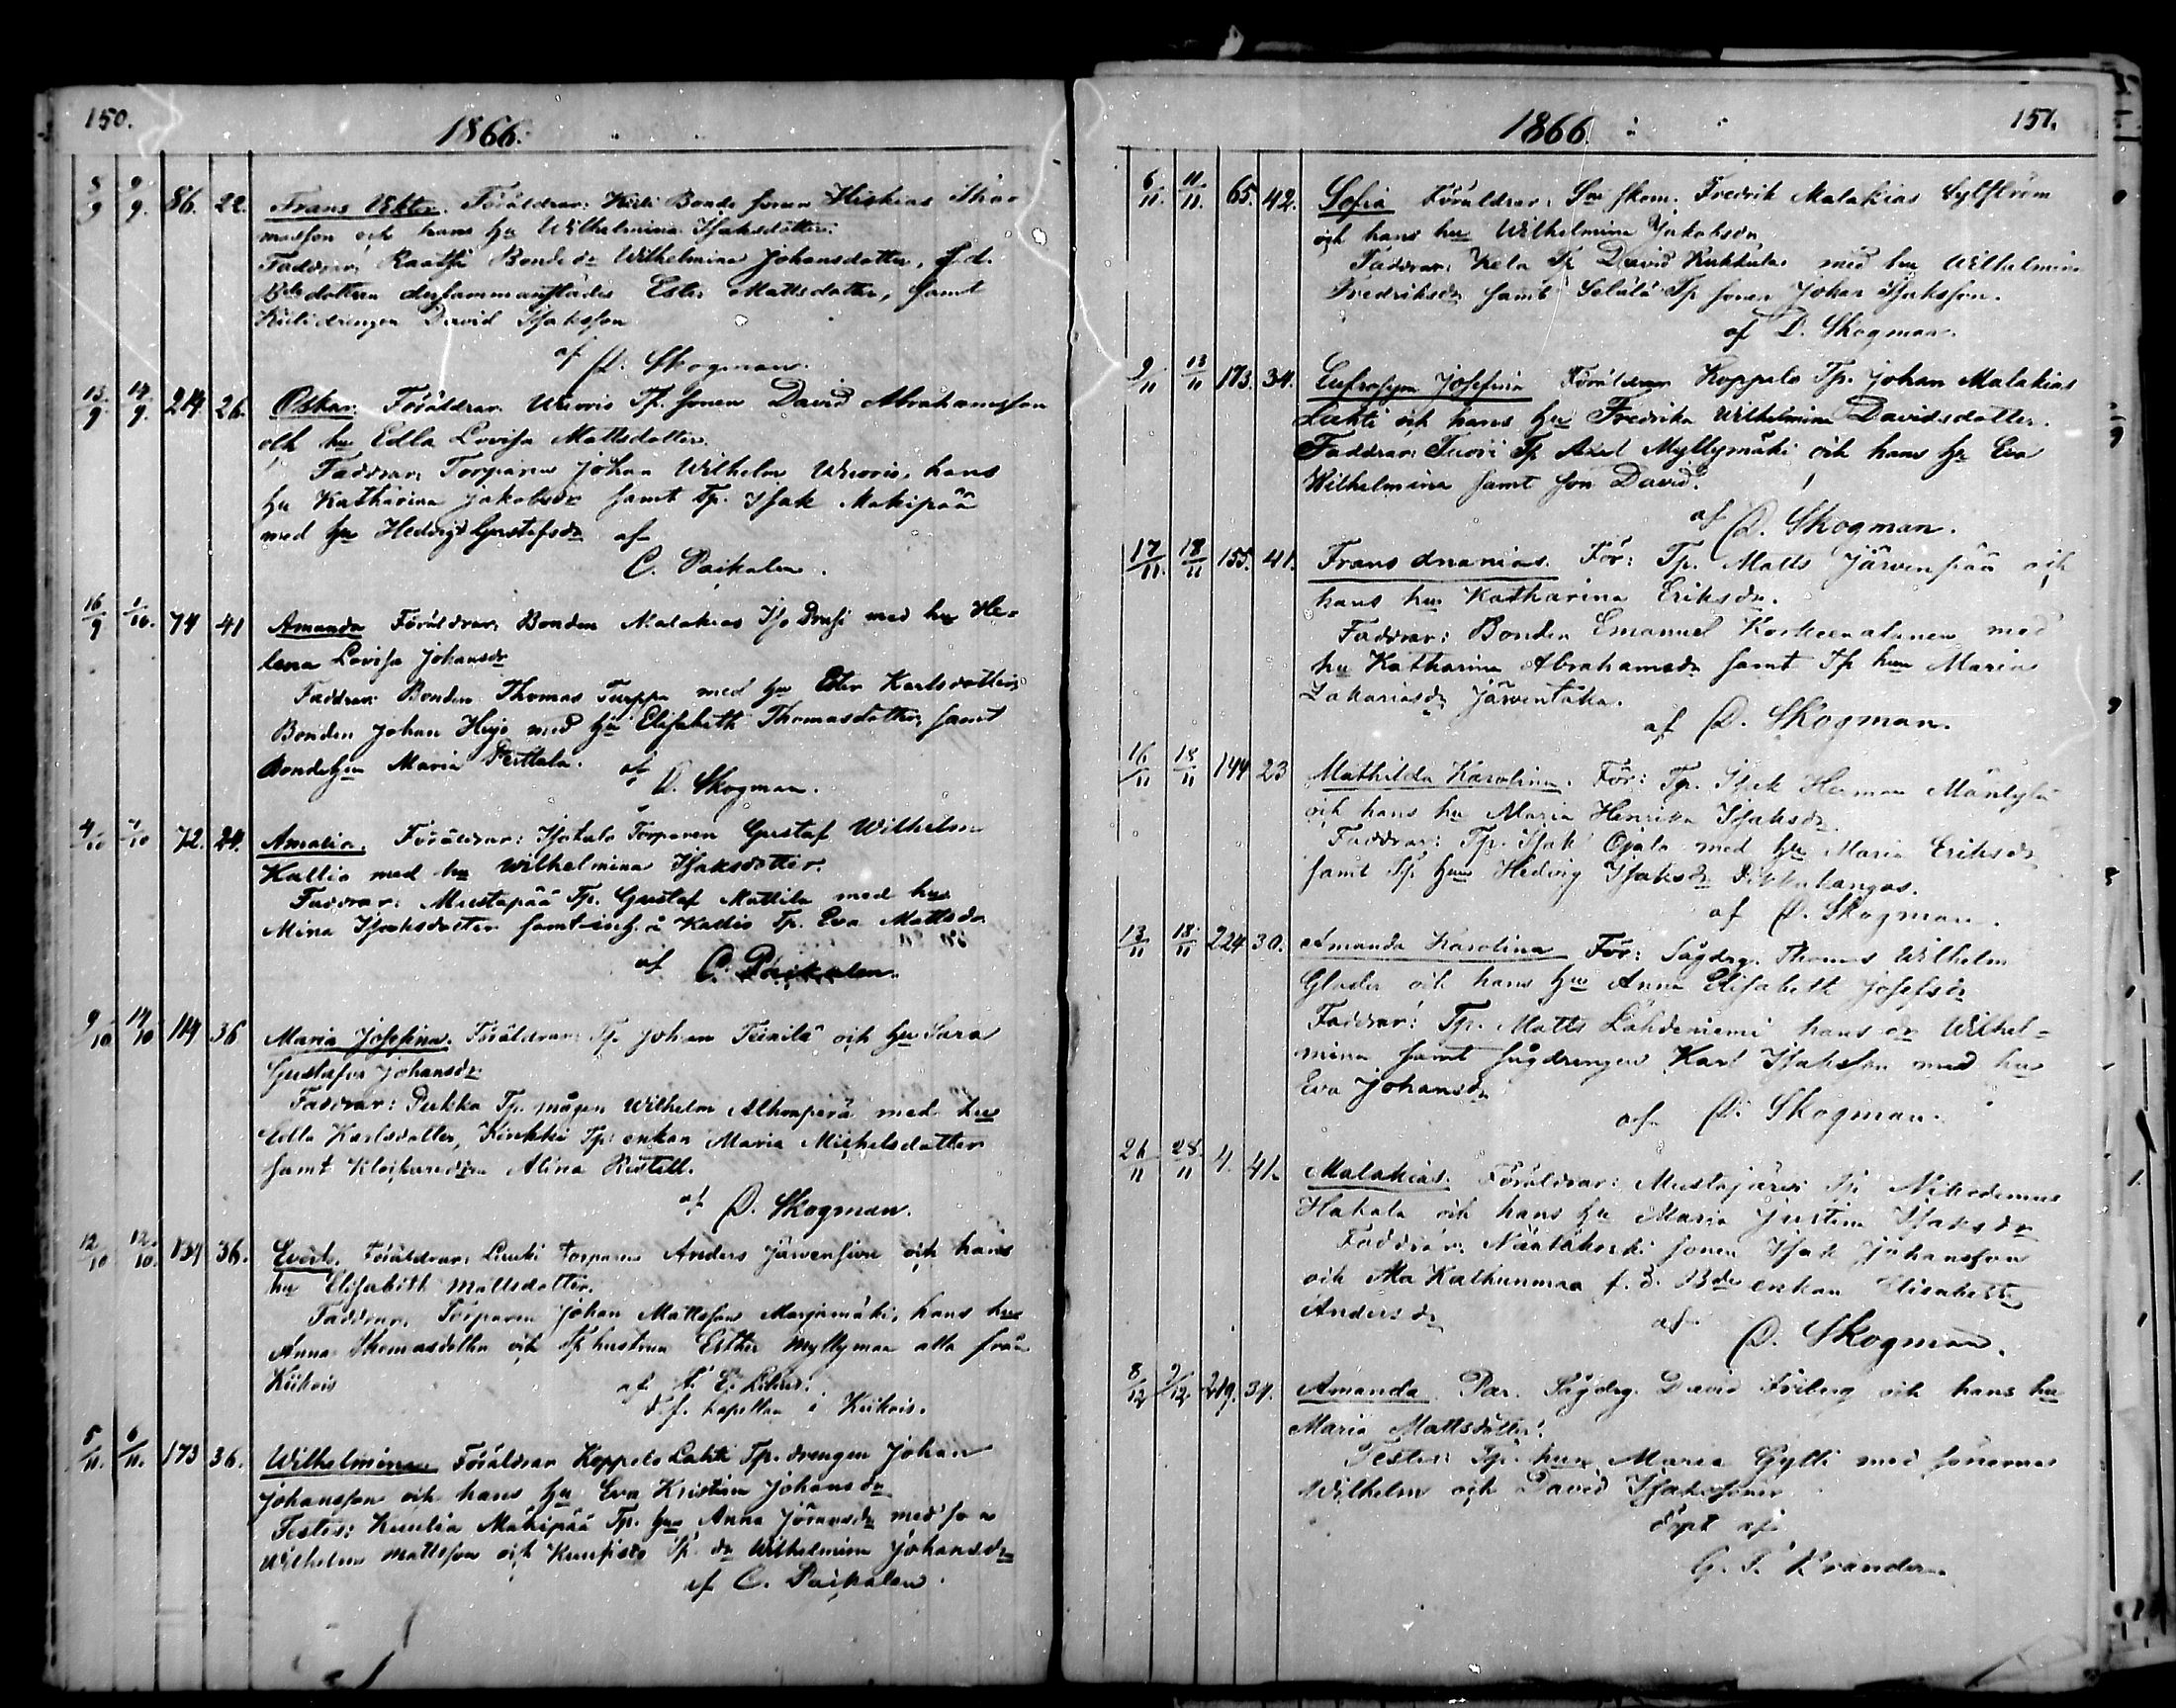 150.
1866.
8/9 9/9. 86. 22. Frans Viktor. Föräldrar: Kuli Bonde sonen Hiskias Tho-
masson och hans hu Wilhelmina Isaksdotter.
Faddrar: Bonde dr Wilhelmina Johansdotter, f.d.
Bde dottren dersammanstädes Ester Mattsdotter, samt
drengen David Isaksson
af D. Skogman.
13/9 14/9. 214 26. Oskar. Föräldrar. Tp. sonen David Abrahamsson
och hu Edla Lovisa Mattsdotter.
Faddrar, Torparen Johan Wilhelm hans
hu Katharina Jakobsdr samt Tp. Isak Mäkipää
med hu Hedvig Gustafsdr af
C. Paikalen.
16/9 1/10. 74 41 Amanda Föräldrar: Bonden Malakias Iso med hu He-
lena Lovisa Johansdr
Faddrar: Bonden Thomas Turppa med hu Ester Karlsdotter,
Bonden Johan Heijo med hu Elisabeth Thomasdotter, samt
Bondehu Maria Perttala. af
D. Skogman.
4/10 7/10 72. 24. Amalia. Föräldrar: Torparen Gustaf Wilhelm
Kallio med hu Wilhelmina Isaksdotter.
Faddrar: Mustapää Tp. Gustaf Mattila med hu
Mina Isaksdotter samt inh. å Kallio Tp. Eva Mattsdr
af C. Paikalen.
9/10 14/10 114 36 Maria Josefina. Föräldrar: Tp. Johan och hu Sara
Gustafva Johansdr
Faddrar: Pukka Tp. mågen Wilhelm med hu
Edla Karlsdotter, Kinkki Tp: enkan Maria Michelsdotter
samt Alina
af D. Skogman.
12/10 12./10. 134 36. Evert. Föräldrar: torparen Anders och hans
hu Elisabeth Mattsdotter.
Faddrar, Torparen Johan Mattsson Marjamäki, hans hu
Anna Thomasdotter och Tp hustrun Esther Myllymaa alla från
Kiikois af
kapellan i Kiikois.
5/11. 6/11. 173 36. Wilhelmina Föräldrar Koppelo Lahti Tp. drengen Johan
Johansson och hans hu Eva Kristina Johansdr
Testes: Mäkipää Tp. hu Anna med son
Wilhelm Mattsson och Tp. dr Wilhelmina Johansdr
af C. Paikalen.
1866.
151.
6/11. 11/11. 65. 42. Sofia Föräldrar: skom. Fredrik Malakias Sylfström
och hans hu Wilhelmina Jakobsdr
Faddrar: Kela Tp David med hu Wilhelmina
Fredriksdr samt Tp sonen Johan Isaksson.
af D. Skogman.
9/11 13/11 173. 34. Eufrosyne Josefina Föräldrar Koppelo Tp. Johan Malakias
Lahti och hans hu Fredrika Wilhelmina Davidsdotter.
Faddrar: Tuori Tp Axel Myllymäki och hans hu Eva
Wilhelmina samt son David.
af D. Skogman.
17/11. 18/11 155. 41. Frans Ananias. För: Tp. Matts Järvenpää och
hans hu Katharina Eriksdr.
Faddrar: Bonden Emanuel med
hu Katharina Abrahamsdr samt Tp hun Maria
Zakariasdr Järventaka.
af D. Skogman.
16/11 18/11 144 23 Mathilda Karolina. För: Tp. Isak Herman Mäntylä
och hans hu Maria Henrika Isaksdr
Faddrar: Tp. Isak Ojala med hu Maria Eriksdr
samt Tp. hun Hedvig Isaksdr
af D. Skogman.
13/11 18/11 224 30. Amanda Karolina För: Sågdrg. Thomas Wilhelm
Glader och hans hu Anna Elisabeth Josefsdr
Faddrar: Tp. Matts Lähdeniemi hans dr Wilhel-
mina samt sågdrengen Karl Isaksson med hu
Eva Johansdr
af D. Skogman.
26/11 28/11 4. 41. Malakias. Föräldrar: Mustajärvi Tp Nikodemus
Hakala och hans hu Maria Justina Isaksdr
Faddrar: sonen Isak Johansson
och f.d. Bde enkan Elisabeth
Andersdr af
D. Skogman.
8/12 9/12 219. 34. Amanda. Par. Sågdrg. David Friberg och hans hu
Maria Mattsdotter.
Testes: Tp. hun Maria Gylli med sönerna
Wilhelm och David Isakssöner
döpt af
G. T.